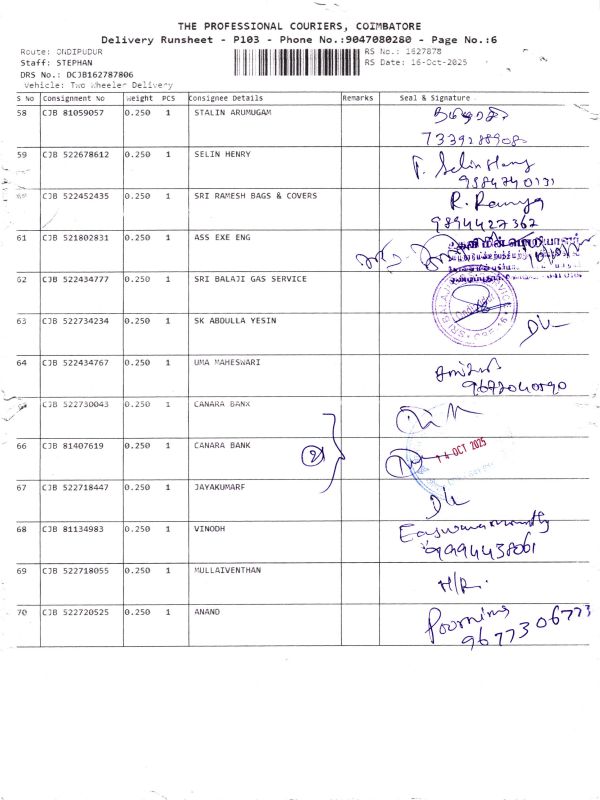 THE PROFESSIONAL COURIERS, COIMBATORE
Delivery Runsheet - P103 - Phone No.:9047080280 - Page No.:6
Route: ONDIPUDUR
RS No.: 1627878
Staff: STEPHAN
RS Date: 16-Oct-2025
DRS No.: DCJB162787806
Vehicle: Two Wheeler Delivery
S No Consignment No Weight PCS Consignee Details Remarks Seal & Signature
58 CJB 81059057 0.250 1 STALIN ARUMUGAM
7339288908
59 CJB 522678612 0.250 1 SELIN HENRY T. Selin Henry
9984740131
60 CJB 522452435 0.250 1 SRI RAMESH BAGS & COVERS R. Ramya
9894427362
61 CJB 521802831 0.250 1 ASS EXE ENG
62 CJB 522434777 0.250 1 SRI BALAJI GAS SERVICE
63 CJB 522734234 0.250 1 SK ABDULLA YESIN D/L
64 CJB 522434767 0.250 1 UMA MAHESWARI
65 CJB 522730043 0.250 1 CANARA BANK
66 CJB 81407619 0.250 1 CANARA BANK
OCT 2025
67 CJB 522718447 0.250 1 JAYAKUMARF D/L
68 CJB 81134983 0.250 1 VINODH
9994438061
69 CJB 522718055 0.250 1 MULLAIVENTHAN H/R.
70 CJB 522720525 0.250 1 ANAND Poornima
9677306773